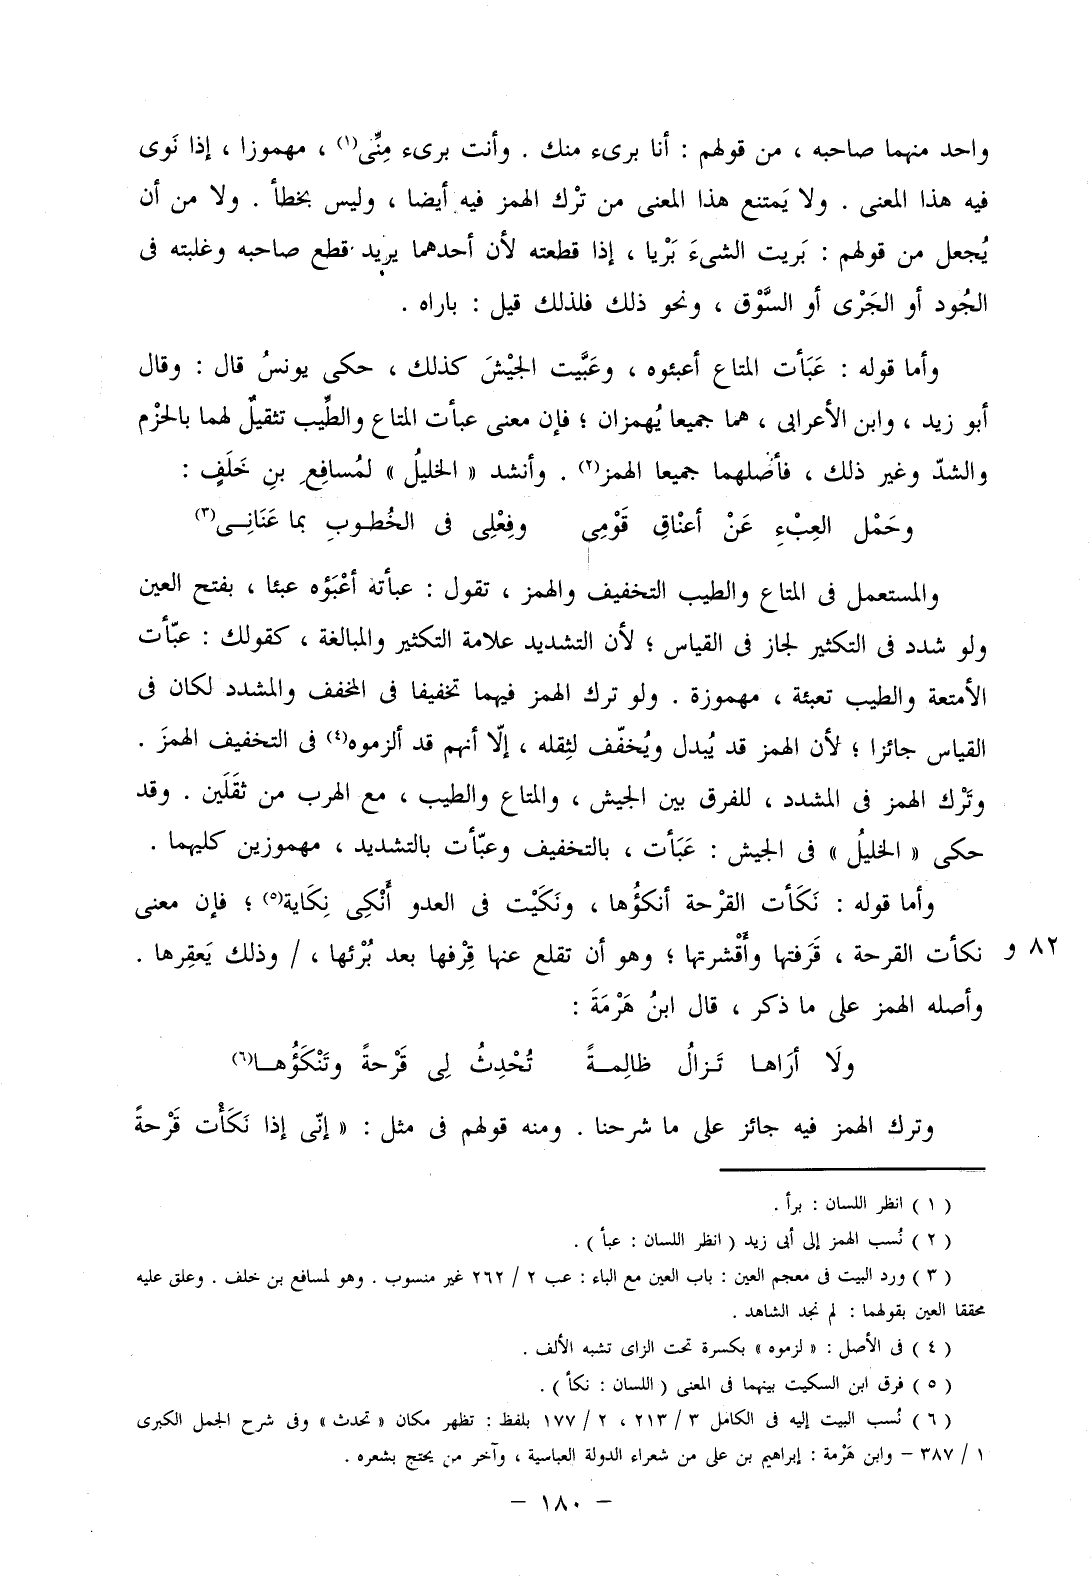 واحد منهما صاحبه ، من قولهم : أنا برىء منك . وأنت برىء مِنِّى(١) ، مهموزا ، إذا نَوى
فيه هذا المعنى . ولا يَمتنع هذا المعنى من تْرك الهمز فيه أيضا ، وليس بخطأ . ولا من أن
يُجعل من قولهم : بَريت الشىءَ بَرْيا ، إذا قطعته لأن أحدهما يريد قطع صاحبه وغلبته فى
الجُود أو الجَرْى أو السَّوْق ، ونحو ذلك فلذلك قيل : باراه .
وأما قوله : عَبَأت المتاع أعبئوه ، وعَبَّيت الجيْشَ كذلك ، حكى يونسُ قال : وقال
أبو زيد ، وابن الأعرابى ، هما جميعا يُهمزان ؛ فإن معنى عبأت المتاع والطِّيب تثقيلٌ لهما بالحزْم
والشدّ وغير ذلك ، فأصْلهما جميعا الهمز(٢) . وأنشد « الخليلُ » لمُسافِعِ بنِ خَلَفٍ :
وحَمْل العِبْءِ عَنْ أعناقِ قَوْمِى وفِعْلِى فى الخُطوبِ بما عَنَانِى(٣)
والمستعمل فى المتاع والطيب التخفيف والهمز ، تقول : عبأته أعْبَؤه عبئا ، بفتح العين
ولو شدد فى التكثير لجاز فى القياس ؛ لأن التشديد علامة التكثير والمبالغة ، كقولك : عبّأت
الأمتعة والطيب تعبئة ، مهموزة . ولو ترك الهمز فيهما تخفيفا فى المخفف والمشدد لكان فى
القياس جائزا ؛ لأن الهمز قد يُبدل ويُخفّف لثِقله ، إلّا أنهم قد ألزموه(٤) فى التخفيف الهمزَ .
وتَرْك الهمز فى المشدد ، للفرق بين الجيش ، والمتاع والطيب ، مع الهرب من ثقَلَين . وقد
حكى « الخليلُ » فى الجيش : عَبَأت ، بالتخفيف وعبّأت بالتشديد ، مهموزين كليهما .
وأما قوله : نَكَأت القرْحة أنكؤُها ، ونَكَيْت فى العدو أَنْكِى نِكَاية(٥) ؛ فإن معنى
٨٢ و نكأت القرحة ، قَرَفتها وأَقْشرتها ؛ وهو أن تقلع عنها قِرْفها بعد بُرْئها ، / وذلك يَعقِرها .
وأصله الهمز على ما ذكر ، قال ابنُ هَرْمَةَ :
ولَا أرَاهـا تَـزالُ ظالِمـةً تُحْدِثُ لِى قَرْحةً وتَنْكَؤُهـا(٦)
وترك الهمز فيه جائز على ما شرحنا . ومنه قولهم فى مثل : « إنّى إذا نَكَأْت قَرْحةً
( ١ ) انظر اللسان : برأ .
( ٢ ) نُسب الهمز إلى أبى زيد ( انظر اللسان : عبأ ) .
( ٣ ) ورد البيت فى معجم العين : باب العين مع الباء : عب ٢ / ٢٦٢ غير منسوب . وهو لمسافع بن خلف . وعلق عليه
محققا العين بقولهما : لم نجد الشاهد .
( ٤ ) فى الأصل : « لزموه » بكسرة تحت الزاى تشبه الألف .
( ٥ ) فرق ابن السكيت بينهما فى المعنى ( اللسان : نكأ ) .
( ٦ ) نُسب البيت إليه فى الكامل ٣ / ٢١٣ ، ٢ / ١٧٧ بلفظ : تظهر مكان « تحدث » وفى شرح الجمل الكبرى
١ / ٣٨٧ – وابن هَرْمة : إبراهيم بن على من شعراء الدولة العباسية ، وآخر من يحتج بشعره .
– ١٨٠ –